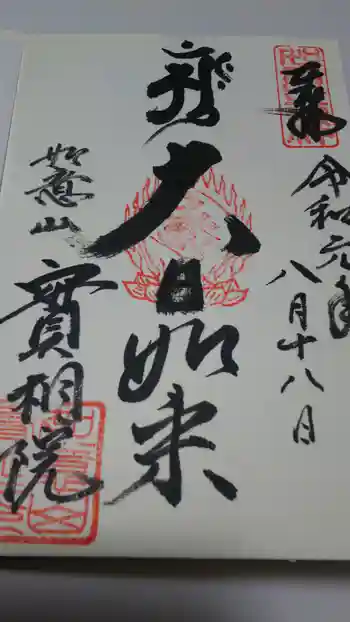 奉拝
令和元年
八月十八日
大日如来
如意山
實相院